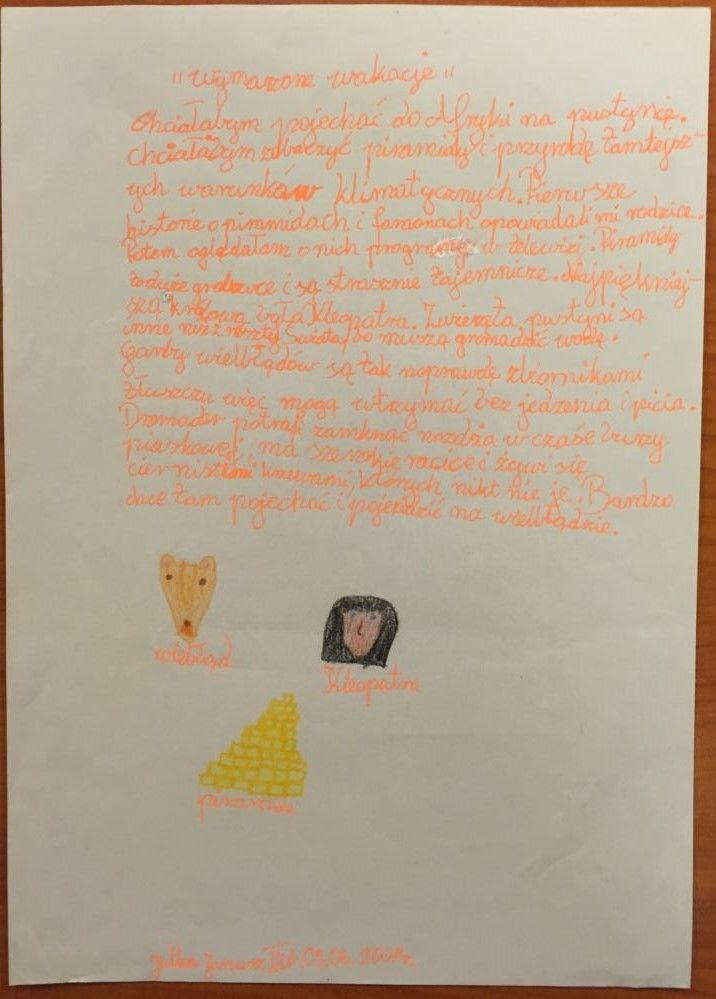 "Wymarzone wakacje"
Chciałabym pojechać do Afryki na pustynię.
Chciałabym zobaczyć piramidy i przyrodę tamtejsz-
ych warunków klimatycznych. Pierwsze
historie o piramidach i faraonach opowiadali mi rodzice.
Potem oglądałam o nich programy w telewizji. Piramidy
to duże grobowce i są strasznie tajemnicze. Najpiękniej-
szą królową była Kleopatra. Zwierzęta pustyni są
inne niż z reszty Świata, bo muszą gromadzić wodę.
Garby wielbłądów są tak naprawdę zbiornikami
tłuszczu więc mogą wtrzymać bez jedzenia i picia.
Dromader potrafi zamknąć nozdża w czaśe burzy
piaskowej, ma szerokie racice i żywi się
ciernistymi krzewami, których nikt nie je. Bardzo
chcę tam pojechać i pojeździć na wielbłądzie.
wielbłąd
Kleopatra
piramida
Janusz